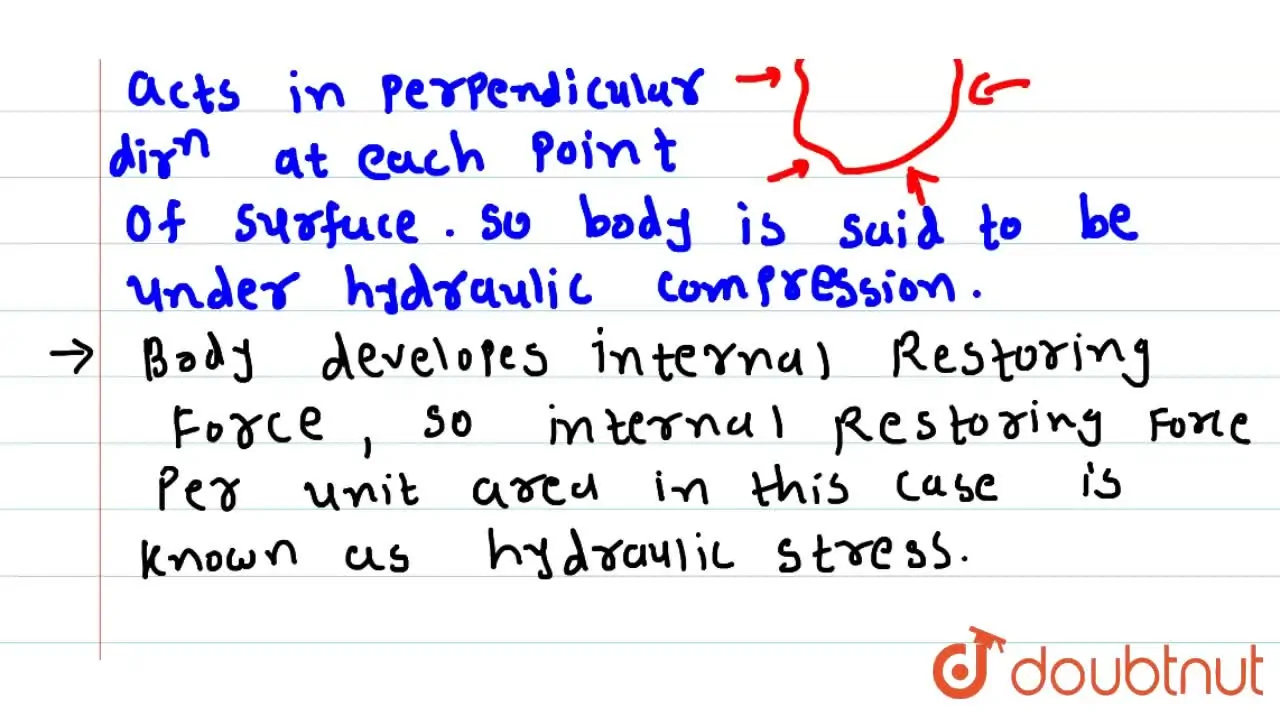 acts in perpendicular
dirⁿ at each point
of surface. so body is said to be
under hydraulic compression.
→ Body developes internal Restoring
Force, so internal Restoring Force
Per unit area in this case is
known as hydraulic stress.
doubtnut